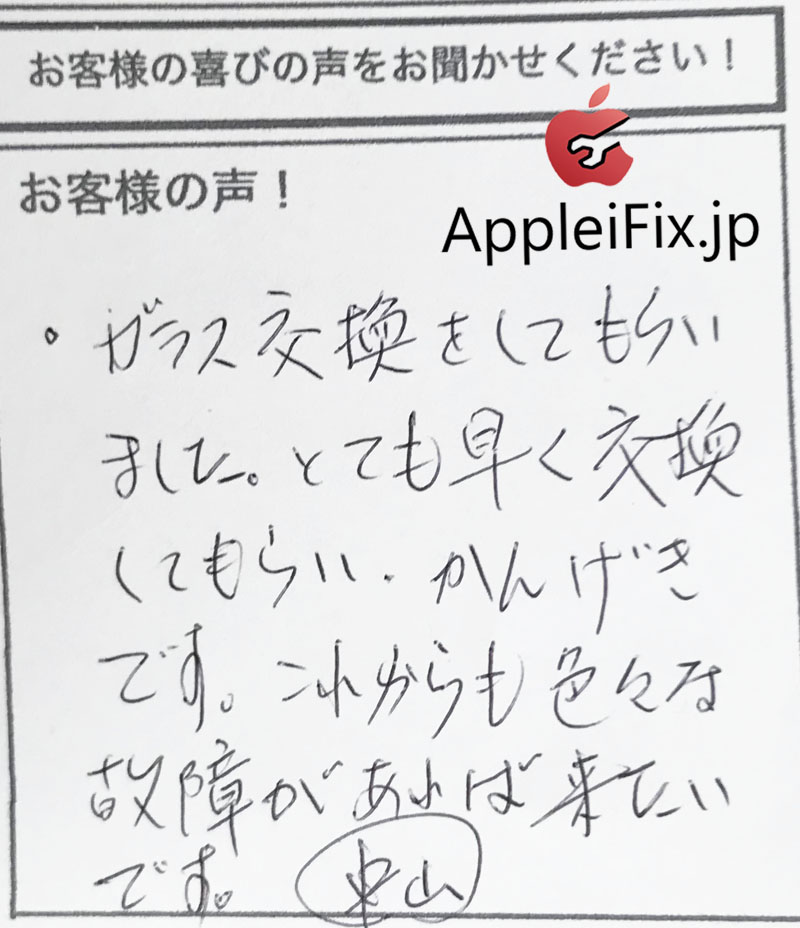 お客様の喜びの声をお聞かせください！
お客様の声！
AppleiFix.jp
・ガラス交換をしてもらい
ました。とても早く交換
してもらい、かんげき
です。これからも色々な
故障があれば来たい
です。 東山